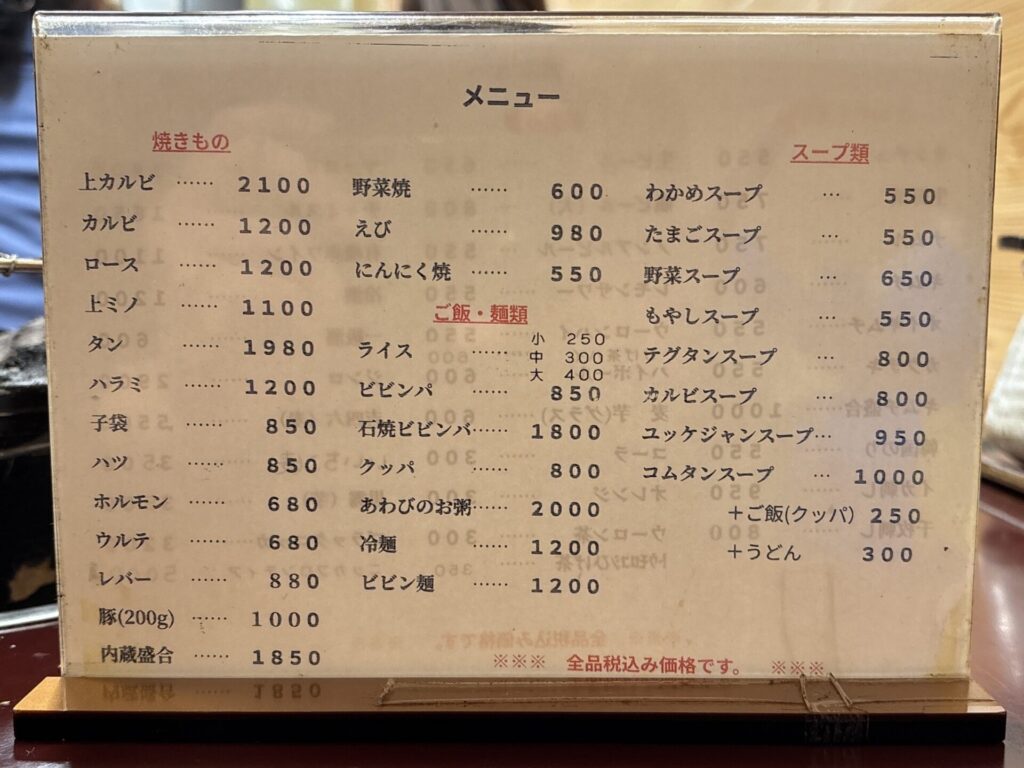 メニュー
焼きもの
上カルビ …… 2100
カルビ …… 1200
ロース …… 1200
上ミノ …… 1100
タン …… 1980
ハラミ …… 1200
子袋 …… 850
ハツ …… 850
ホルモン …… 680
ウルテ …… 680
レバー …… 880
豚(200g) …… 1000
内蔵盛合 …… 1850
野菜焼 …… 600
えび …… 980
にんにく焼 …… 550
ご飯・麺類
ライス …… 小 250
中 300
大 400
ビビンバ …… 850
石焼ビビンバ…… 1800
クッパ …… 800
あわびのお粥…… 2000
冷麺 …… 1200
ビビン麺 …… 1200
スープ類
わかめスープ … 550
たまごスープ … 550
野菜スープ … 650
もやしスープ … 550
テグタンスープ … 800
カルビスープ … 800
ユッケジャンスープ… 950
コムタンスープ … 1000
＋ご飯(クッパ) 250
＋うどん 300
※※※ 全品税込み価格です。 ※※※